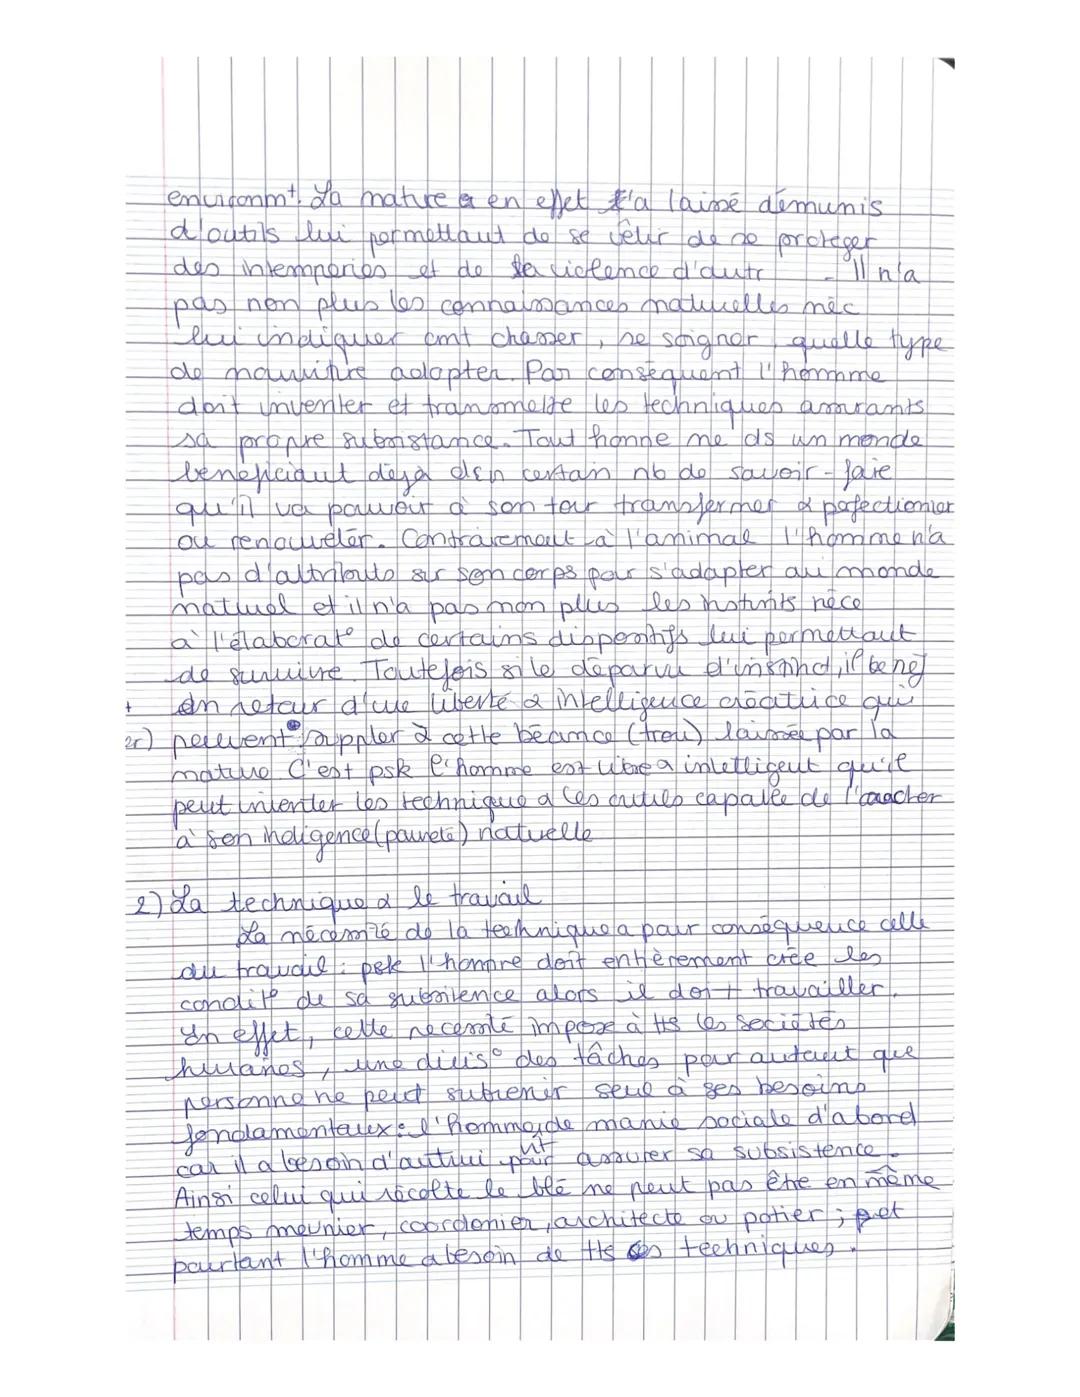 environmt. La nature en effet l'a laissé démunis
d'outils lui permettant de se vêtir de se proteger
des intemperies et de la violence d'autr - Il n'a
pas non plus les connaissances naturelles néc
lui indiquer cmt chasser, se soigner, quelle type
de nourriture adopter. Par conséquent l'homme
doit inventer et transmettre les techniques assurants
sa propre subsistance. Tout homme ne ds un monde
beneficiant déjà d'un certain nb de savoir-faie
qu'il va pouvoir à son tour transformer & pefectionier
ou renouveler. Contrairement à l'animal l'homme n'a
pas d'attributs sur son corps pour s'adapter au monde
naturel et il n'a pas non plus les instincts néce
à l'élaborat° de certains dispositifs lui permettant
de survivre. Toutefois si le déparvu d'instinct, il benef
+ en retour d'une liberté & intelligence créatrice qui
2r) peuvent suppler à cette béance (trou) laissée par la
nature C'est psk l'homme est libre & intelligent qu'il
peut inventer les technique & les outils capable de l'aracher
à son indigence (pauvreté) naturelle
2) La technique & le travail
La nécessité de la technique a pour conséquence celle
du travail : psk l'homme doit entièrement crée les
condit° de sa subsitence alors il doit travailler.
En effet, cette necessité impose à tts les sociétés
humaines, une divis° des tâches pour autant que
personne ne peut subvenir seul à ses besoins
fondamentaux : l'homme, de manie sociale d'abord
car il a besoin d'autrui pour assurer sa subsistence.
Ainsi celui qui récolte le blé ne peut pas être en même
temps meunier, coordonier, architecte ou potier ; et
pourtant l'homme a besoin de tts ces techniques.